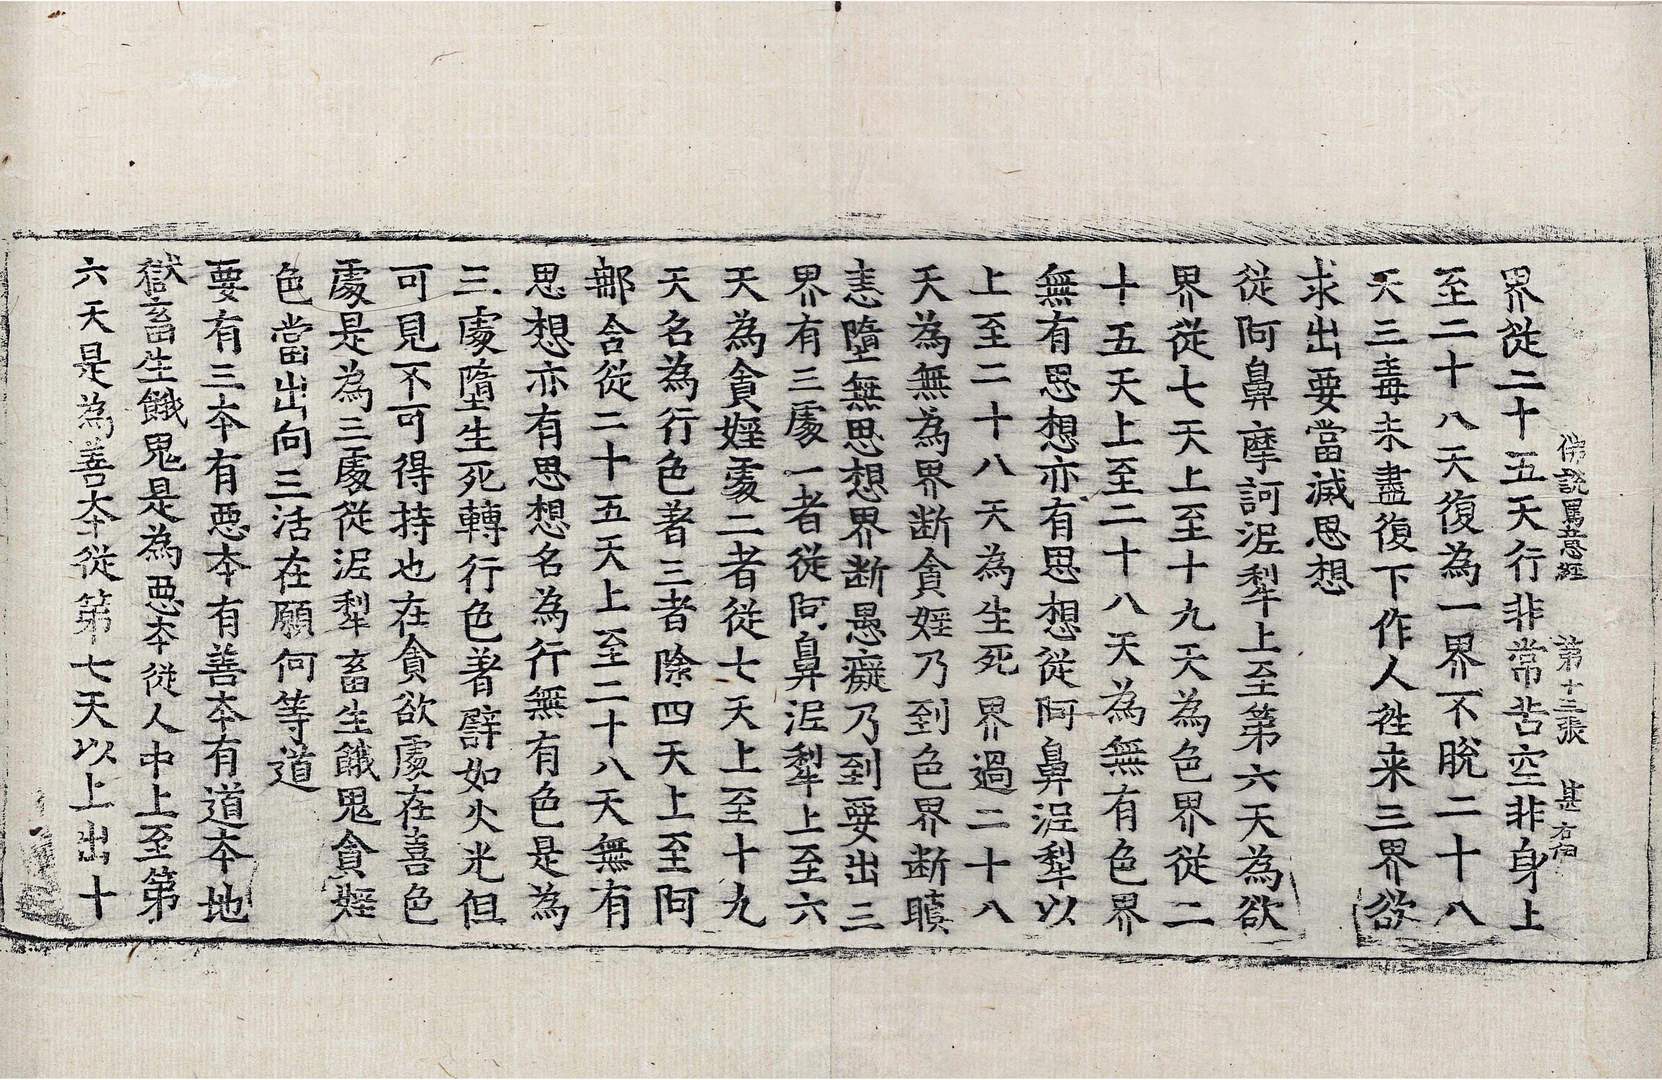 佛說罵意經 第十三張 甚
界從二十五天行非常苦空非身上
至二十八天復為一界不脫二十八
天三毒未盡復下作人徃来三界欲
求出要當滅思想
從阿鼻摩訶泥犁上至第六天為欲
界從七天上至十九天為色界從二
十五天上至二十八天為無有色界
無有思想亦有思想從阿鼻泥犁以
上至二十八天為生死界過二十八
天為無為界断貪婬乃到色界断瞋
恚墮無思想界断愚癡乃到要出三
界有三處一者從阿鼻泥犁上至六
天為貪婬處二者從七天上至十九
天名為行色著三者除四天上至阿
那含從二十五天上至二十八天無有
思想亦有思想名為行無有色是為
三處墮生死轉行色著譬如火光但
可見不可得持也在貪欲處在喜色
處是為三處從泥犁畜生餓鬼貪婬
色當出向三活在願何等道
要有三本有惡本有善本有道本地
獄畜生餓鬼是為惡本從人中上至第
六天是為善本從第七天以上出十